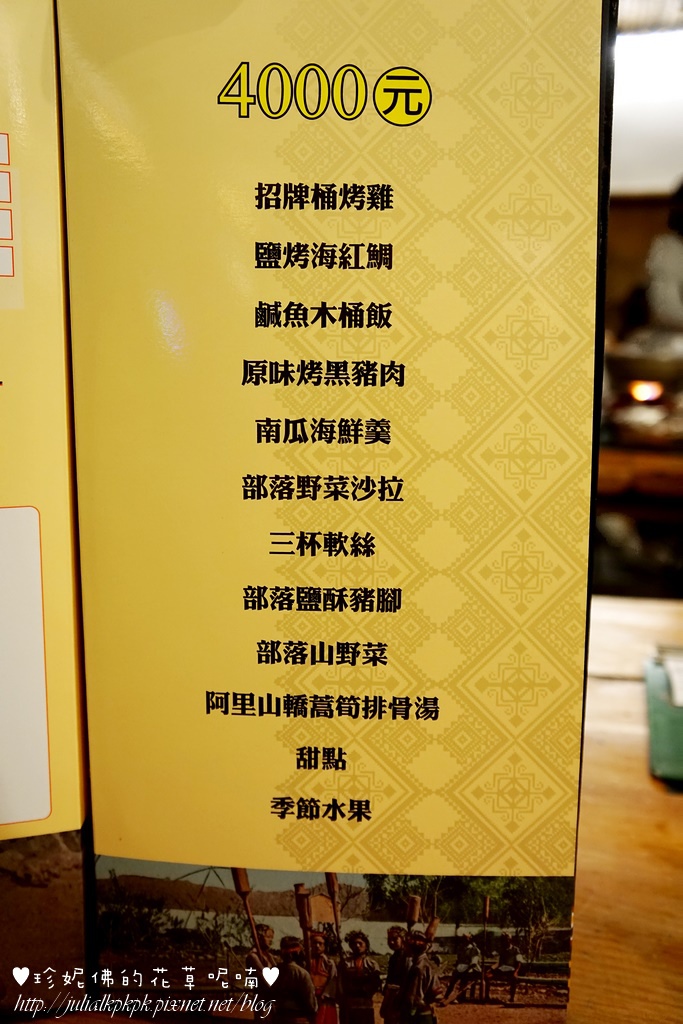 4000元
招牌桶烤雞
鹽烤海紅鯛
鹹魚木桶飯
原味烤黑豬肉
南瓜海鮮羹
部落野菜沙拉
三杯軟絲
部落鹽酥豬腳
部落山野菜
阿里山轎篙筍排骨湯
甜點
季節水果
♥珍妮佛的花草呢喃♥
http://julialkpkpk.pixnet.net/blog